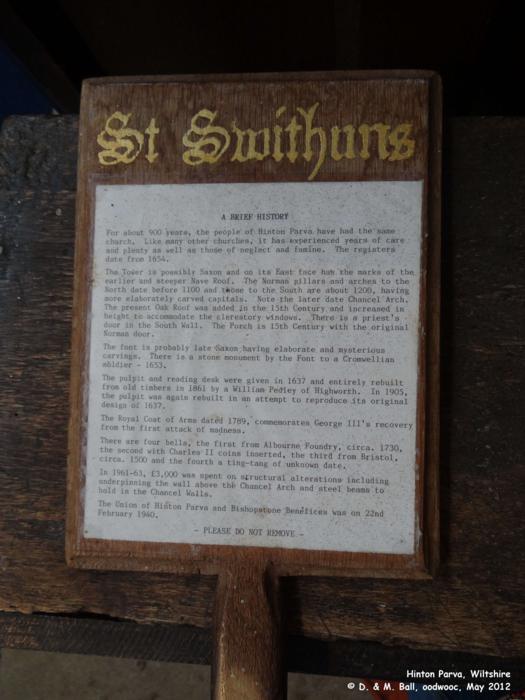 St Swithuns
A BRIEF HISTORY
For about 900 years, the people of Hinton Parva have had the same
church. Like many other churches, it has experienced years of care
and plenty as well as those of neglect and famine. The registers
date from 1654.
The Tower is possibly Saxon and on its East face has the marks of the
earlier and steeper Nave Roof. The Norman pillars and arches to the
North date before 1100 and those to the South are about 1200, having
more elaborately carved capitals. Note the later date Chancel Arch.
The present Oak Roof was added in the 15th Century and increased in
height to accommodate the clerestory windows. There is a priest's
door in the South Wall. The Porch is 15th Century with the original
Norman door.
The font is probably late Saxon having elaborate and mysterious
carvings. There is a stone monument by the Font to a Cromwellian
soldier - 1653.
The pulpit and reading desk were given in 1637 and entirely rebuilt
from old timbers in 1861 by a William Pedley of Highworth. In 1905,
the pulpit was again rebuilt in an attempt to reproduce its original
design of 1637.
The Royal Coat of Arms dated 1789, commemorates George III's recovery
from the first attack of madness.
There are four bells, the first from Albourne Foundry, circa. 1730,
the second with Charles II coins inserted, the third from Bristol,
circa. 1500 and the fourth a ting-tang of unknown date.
In 1961-63, £3,000 was spent on structural alterations including
underpinning the wall above the Chancel Arch and steel beams to
hold in the Chancel Walls.
The Union of Hinton Parva and Bishopstone Benefices was on 22nd
February 1940.
- PLEASE DO NOT REMOVE -
Hinton Parva, Wiltshire
© D. & M. Ball, oodwooc, May 2012